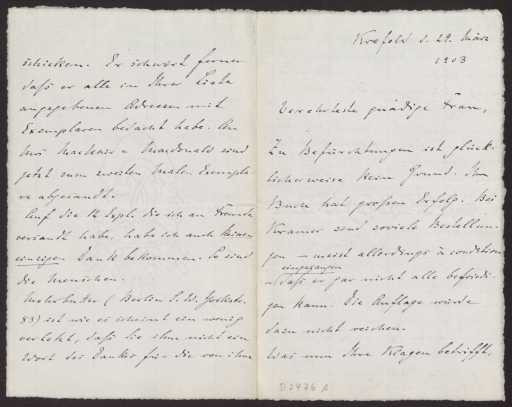 Krefeld d. 29. März
1903
Verehrteste gnädige Frau,
Zu Befürchtungen ist glück-
licherweise kein Grund. Ihr
Buch hat großen Erfolg. Bei
Kramer sind soviele Bestellun-
gen – meist allerdings à condition
eingegangen
– daß er gar nicht alle befriedi-
gen kann. Die Auflage würde
dazu nicht reichen.
Was nun Ihre Klagen betrifft,
schicken. Er schwört ferner
daß er alle in Ihrer Liste
angegebenen Adressen mit
Exemplaren bedacht habe. An
Mrs Mackenzie Macdonald sind
jetzt zum zweiten Male Exempla-
re abgesandt.
Auf die 12 Sept. die ich an Freunde
versandt habe, habe ich auch keinen
einzigen Dank bekommen. So sind
die Menschen.
(Berlin S.W. Yorkstr.
83) ist wie es scheint ein wenig
verletzt, daß Sie ihm nicht ein
Wort des Dankes für die von ihm
D2476 A